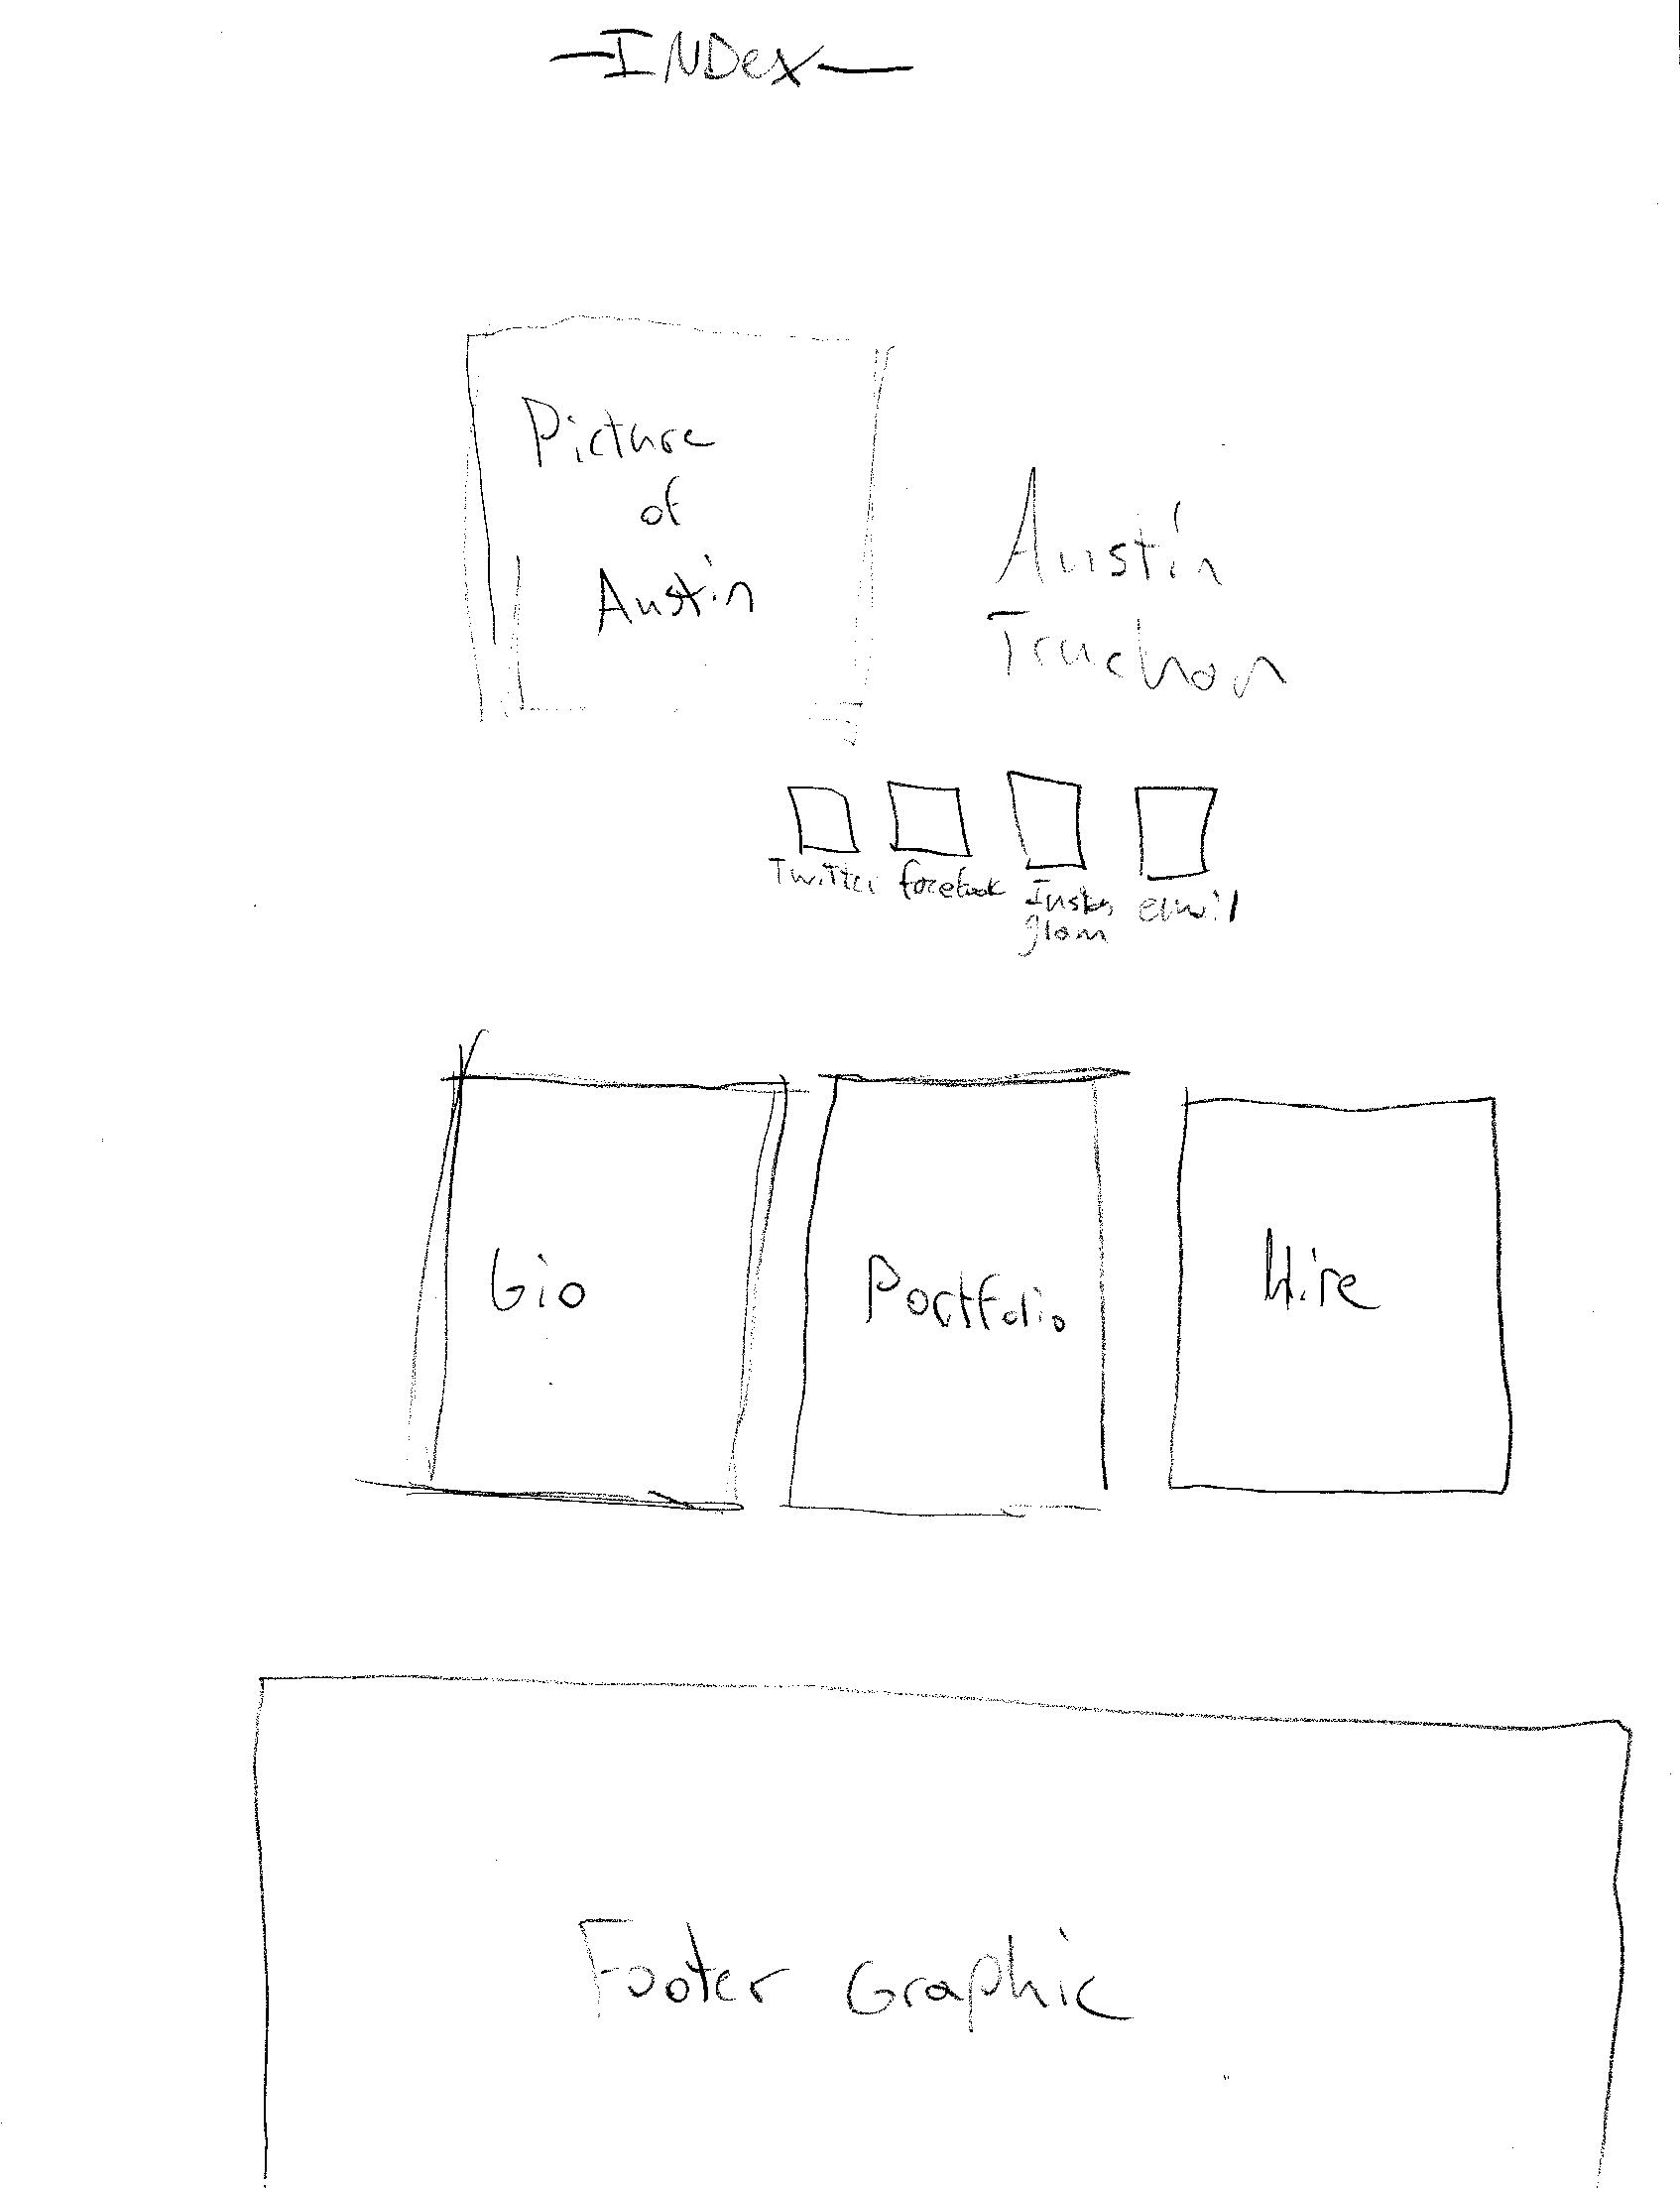 INDex
Picture
of
Austin
Austin
Truchon
Twitter facebook Insta email
gram
Gio Portfolio Hire
Footer Graphic